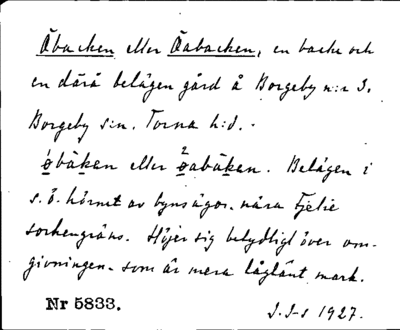 Åbacken eller Åabacken, en backe och
en därå belägen gård å Borgeby n:r 3,
Borgeby s:n. Torna h:d. -
bǻken eller abǻken. Belägen i
s. ö. hörnet av byns ägor, nära Fjelie
sockengräns. Höjer sig betydligt över om-
givningen, som är mera låglänt mark.
Nr 5833.
1927.